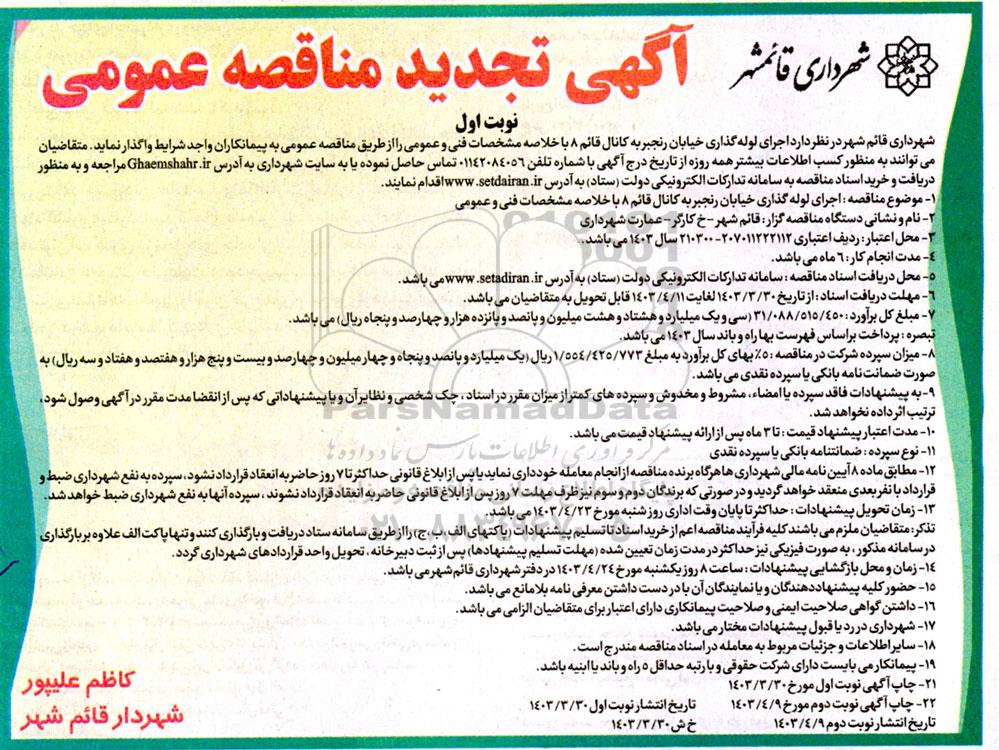 شهرداری قائمشهر
آگهی تجدید مناقصه عمومی
نوبت اول
شهرداری قائم شهر در نظر دارد اجرای لوله گذاری خیابان رنجبر به کانال قائم ۸ با خلاصه مشخصات فنی و عمومی را از طریق مناقصه عمومی به پیمانکاران واجد شرایط واگذار نماید. متقاضیان
می توانند به منظور کسب اطلاعات بیشتر همه روزه از تاریخ درج آگهی با شماره تلفن ۰۱۱۴۲۰۸۴۰۵۶ تماس حاصل نموده یا به سایت شهرداری به آدرس Ghaemshahr.ir مراجعه و به منظور
دریافت و خرید اسناد مناقصه به سامانه تدارکات الکترونیکی دولت (ستاد) به آدرس www.setdairan.ir اقدام نمایند.
۱- موضوع مناقصه : اجرای لوله گذاری خیابان رنجبر به کانال قائم ۸ با خلاصه مشخصات فنی و عمومی
۲- نام و نشانی دستگاه مناقصه گزار: قائم شهر -خ کارگر-عمارت شهرداری
۳- محل اعتبار: ردیف اعتباری ۲۰۷۰۱۱۲۲۲۱۱۲-۲۱۰۳۰۰ سال ۱۴۰۳ می باشد.
۴- مدت انجام کار : ۶ ماه می باشد.
۵- محل دریافت اسناد مناقصه : سامانه تدارکات الکترونیکی دولت (ستاد) به آدرس www.setadiran.ir می باشد.
۶- مهلت دریافت اسناد : از تاریخ ۱۴۰۳/۳/۳۰ لغایت ۱۴۰۳/۴/۱۱ قابل تحویل به متقاضیان می باشد.
۷- مبلغ کل برآورد : ۳۱/۰۸۸/۵۱۵/۴۵۰ (سی و یک میلیارد و هشتاد و هشت میلیون و پانصد و پانزده هزار و چهارصد و پنجاه ریال) می باشد.
تبصره : پرداخت براساس فهرست بها راه و باند سال ۱۴۰۳ می باشد.
۸- میزان سپرده شرکت در مناقصه : ۵٪ بهای کل برآورد به مبلغ ۱/۵۵۴/۴۲۵/۷۷۳ ریال (یک میلیارد و پانصد و پنجاه و چهار میلیون و چهارصد و بیست و پنج هزار و هفتصد و هفتاد و سه ریال) به
صورت ضمانت نامه بانکی یا سپرده نقدی می باشد.
۹- به پیشنهادات فاقد سپرده یا امضاء، مشروط و مخدوش و سپرده های کمتر از میزان مقرر در اسناد ، چک شخصی و نظایر آن و یا پیشنهاداتی که پس از انقضا مدت مقرر در آگهی وصول شود،
ترتیب اثر داده نخواهد شد.
۱۰- مدت اعتبار پیشنهاد قیمت : تا ۳ ماه پس از ارائه پیشنهاد قیمت می باشد.
۱۱- نوع سپرده : ضمانتنامه بانکی یا سپرده نقدی
۱۲- مطابق ماده ۸ آیین نامه مالی شهرداری ها هرگاه برنده مناقصه از انجام معامله خودداری نماید یا پس از ابلاغ قانونی حداکثر تا ۷ روز حاضر به انعقاد قرارداد نشود، سپرده به نفع شهرداری ضبط و
قرارداد با نفر بعدی منعقد خواهد گردید و در صورتی که برندگان دوم و سوم نیز ظرف مهلت ۷ روز پس از ابلاغ قانونی حاضر به انعقاد قرارداد نشوند ، سپرده آنها به نفع شهرداری ضبط خواهد شد.
۱۳- زمان تحویل پیشنهادات : حداکثر تا پایان وقت اداری روز شنبه مورخ ۱۴۰۳/۴/۲۳ می باشد.
تذکر: متقاضیان ملزم می باشند کلیه فرآیند مناقصه اعم از خرید اسناد تا تسلیم پیشنهادات (پاکتهای الف،ب،ج) را از طریق سامانه ستاد دریافت و بارگذاری کنند و تنها پاکت الف علاوه بر بارگذاری
در سامانه مذکور ، به صورت فیزیکی نیز حداکثر در مدت زمان تعیین شده (مهلت تسلیم پیشنهادها) پس از ثبت دبیرخانه ، تحویل واحد قراردادهای شهرداری گردد.
۱۴- زمان و محل بازگشایی پیشنهادات : ساعت ۸ روز یکشنبه مورخ ۱۴۰۳/۴/۲۴ در دفتر شهرداری قائم شهر می باشد.
۱۵- حضور کلیه پیشنهاددهندگان و یا نمایندگان آن با در دست داشتن معرفی نامه بلامانع می باشد.
۱۶- داشتن گواهی صلاحیت ایمنی و صلاحیت پیمانکاری دارای اعتبار برای متقاضیان الزامی می باشد.
۱۷- شهرداری در رد یا قبول پیشنهادات مختار می باشد.
۱۸- سایر اطلاعات و جزئیات مربوط به معامله در اسناد مناقصه مندرج است.
۱۹- پیمانکار می بایست دارای شرکت حقوقی و با رتبه حداقل ۵ راه و باند یا ابنیه باشد.
۲۱- چاپ آگهی نوبت اول مورخ ۱۴۰۳/۳/۳۰
۲۲- چاپ آگهی نوبت دوم مورخ ۱۴۰۳/۴/۹ تاریخ انتشار نوبت اول ۱۴۰۳/۳/۳۰
تاریخ انتشار نوبت دوم ۱۴۰۳/۴/۹ خ ش ۱۴۰۳/۳/۳۰
کاظم علیپور
شهردار قائم شهر
ParsNamadData
مرکز فرآوری اطلاعات پارس نماد داده ها